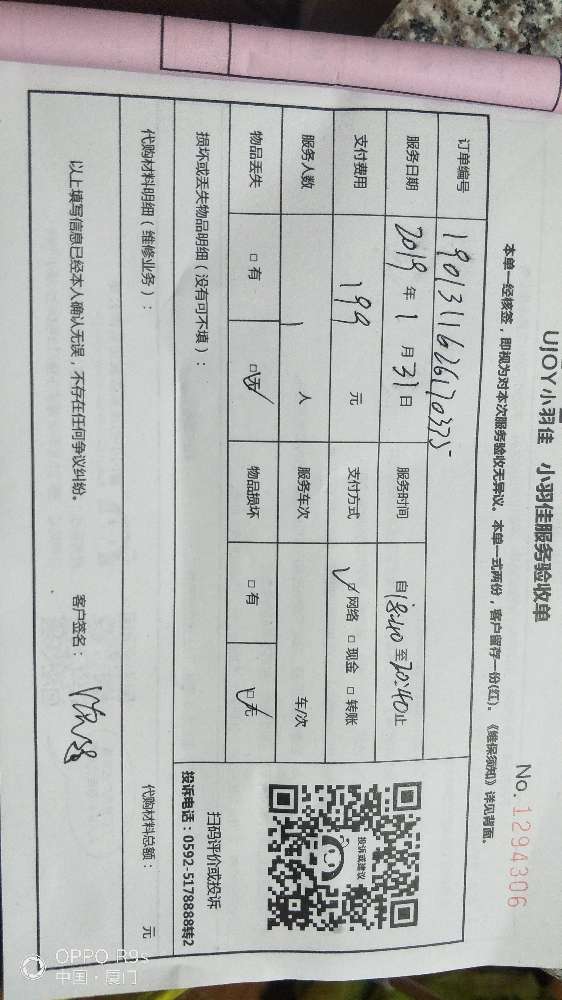 UJOY小羽佳 小羽佳服务验收单
No. 1294306
本单一经核签，即视为对本次服务验收无异议。本单一式两份，客户留存一份(红)。《维保须知》详见背面。
订单编号 19013116261703375
服务日期 2019 年 1 月 31 日 服务时间 自 18:40 至 20:40 止
支付费用 199 元 支付方式 ☑ 网络 □ 现金 □ 转账
服务人数 1 人 服务车次 车/次
物品丢失 □ 有 ☑ 无 物品损坏 □ 有 ☑ 无
损坏或丢失物品明细（没有可不填）：
扫码评价或投诉
投诉电话：0592-5178888转2
投诉或建议
代购材料明细（维修业务）：
代购材料总额： 元
以上填写信息已经本人确认无误，不存在任何争议纠纷。 客户签名：
OPPO R9s
中国·厦门